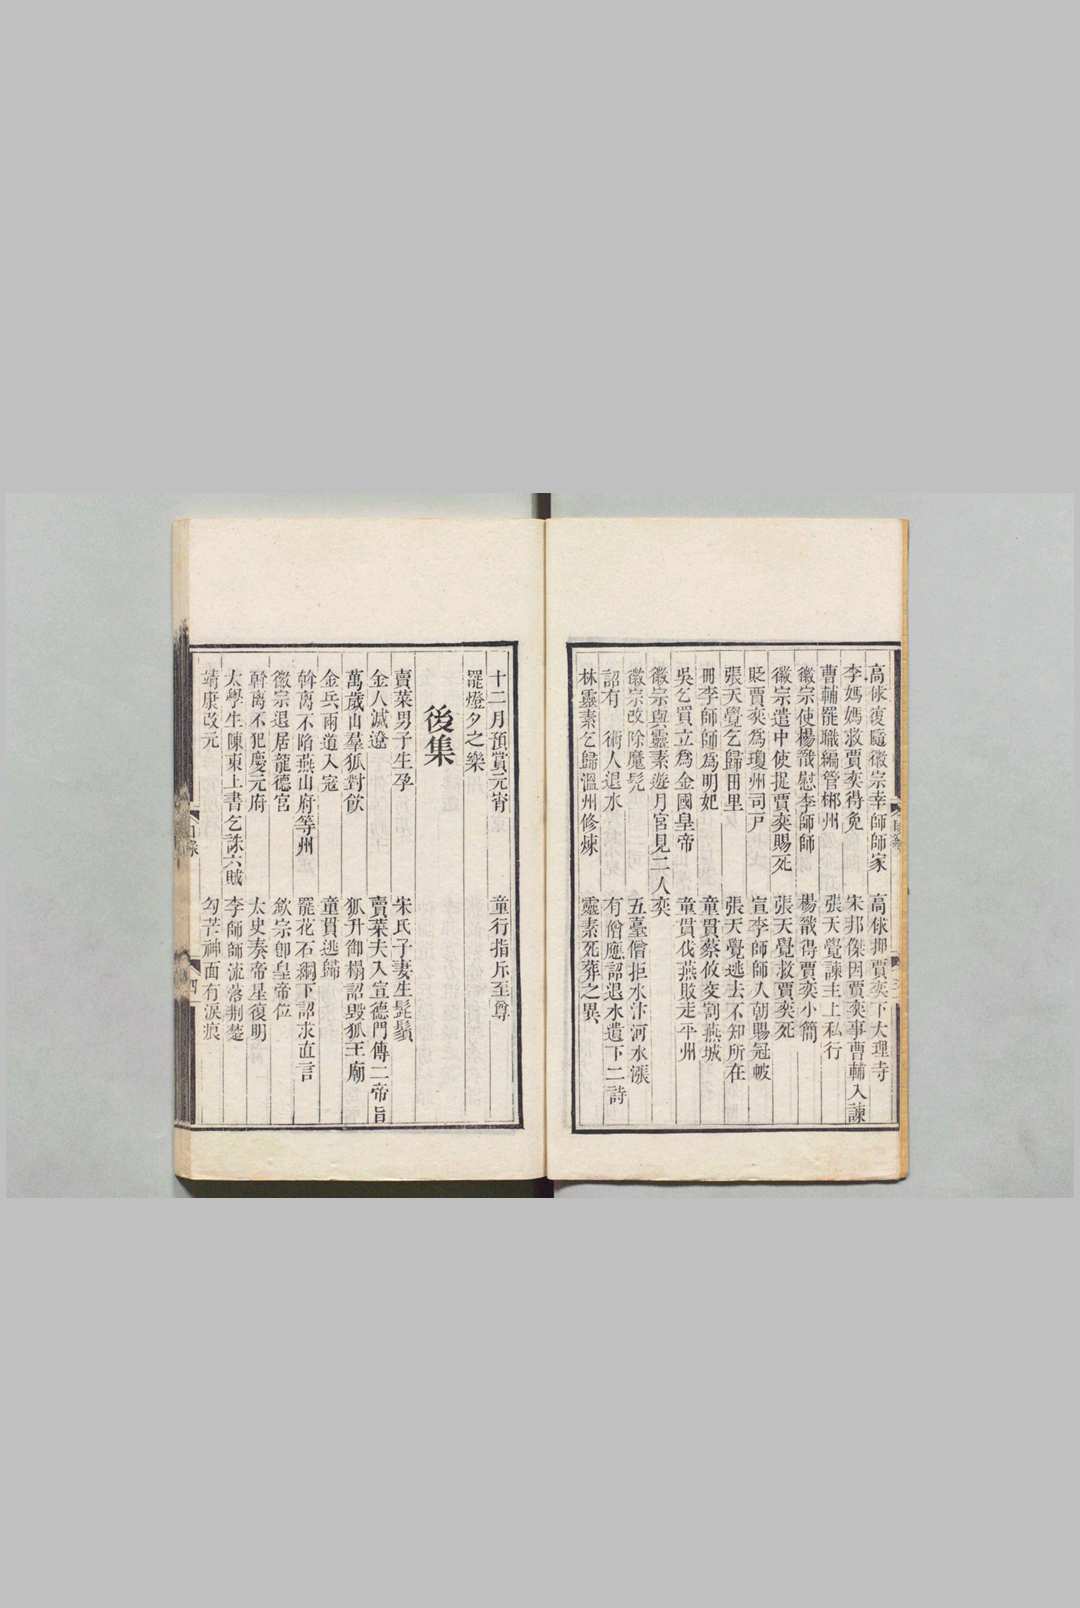 高俅復隨徽宗幸師師家　高俅押賈奕下大理寺
李媽媽救賈奕得免　宋邦傑因賈奕事曹輔入諫
曹輔罷職編管郴州　張天覺諫主上私行
徽宗使楊戩慰李師師　楊戩得賈奕小簡
徽宗遣中使捉賈奕賜死　張天覺救賈奕死
貶賈奕爲瓊州司戸　宣李師師入朝賜冠帔
張天覺乞歸田里　張天覺逃去不知所在
冊李師師爲明妃　童貫蔡攸交割燕城
吳乞買立爲金國皇帝　童貫伐燕敗走平州
徽宗與靈素遊月宮見二人奕
徽宗改除魔髡　五臺僧拒水汴河水漲
詔有　術人退水　有僧應詔退水遺下二詩
林靈素乞歸溫州修煉　靈素死葬之異
目錄
十二月預賞元宵　童行指斥至尊
罷燈夕之樂
後集
賣菜男子生孕　朱氏子妻生髭鬚
金人滅遼　賣菜夫入宣德門傳二帝旨
萬歲山羣狐對飲　狐升御榻詔毀狐王廟
金兵兩道入寇　童貫逃歸
斡离不陷燕山府等州　罷花石綱下詔求直言
徽宗退居龍德宮　欽宗卽皇帝位
斡离不犯慶元府　太史奏帝星復明
太學生陳東上書乞誅六賊　李師師流落荆楚
靖康改元　勾芒神面有淚痕
目錄
四